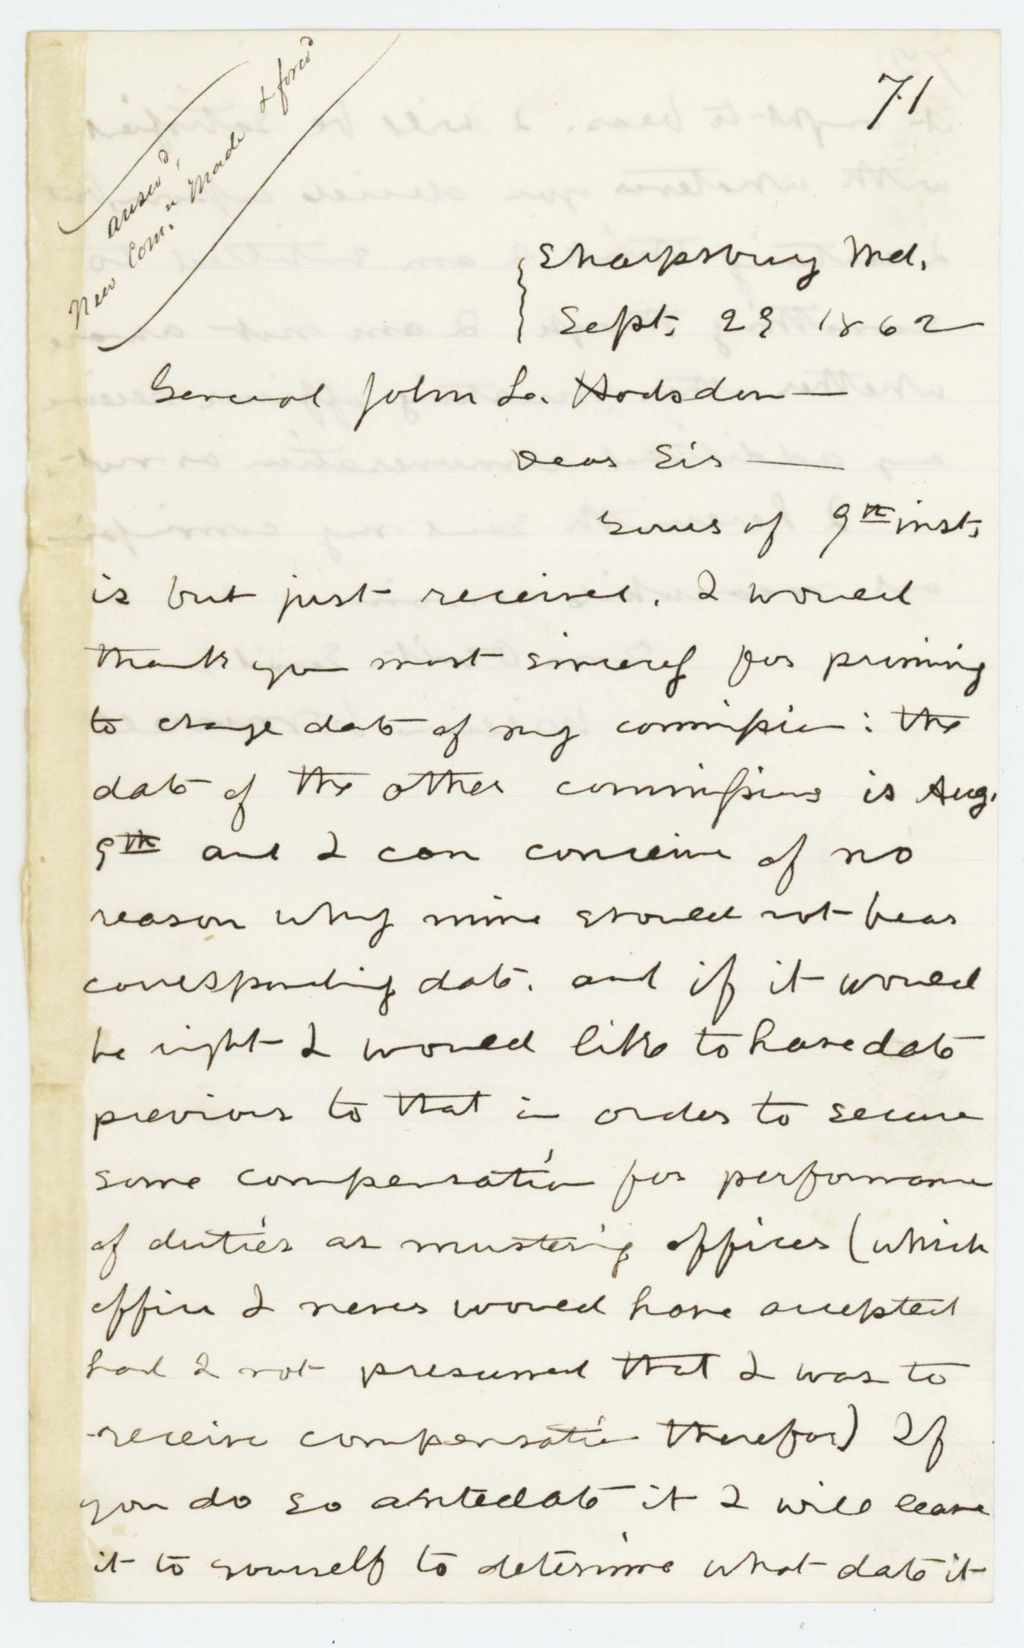 71
answd,
New Com.n Made & forwd
Sharpsburg Md.
Sept. 23 1862
General John L. Hodsdon—
Dear Sir—
Yours of 9th inst.
is but just received. I would
thank you most sincerely for promising
to change date of my commission: the
date of the other commissions is Aug.
9th and I can conceive of no
reason why mine should not bear
corresponding date. and if it would
be right I would like to have date
previous to that in order to secure
some compensation for performance
of duties as mustering officer (which
office I never would have accepted
had I not presumed that I was to
receive compensation therefor) If
you do so antedate it I will leave
it to yourself to determine what date it